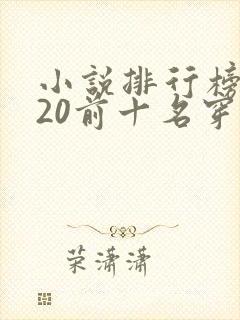 小說排行榜
20前十名穿
荣潇潇